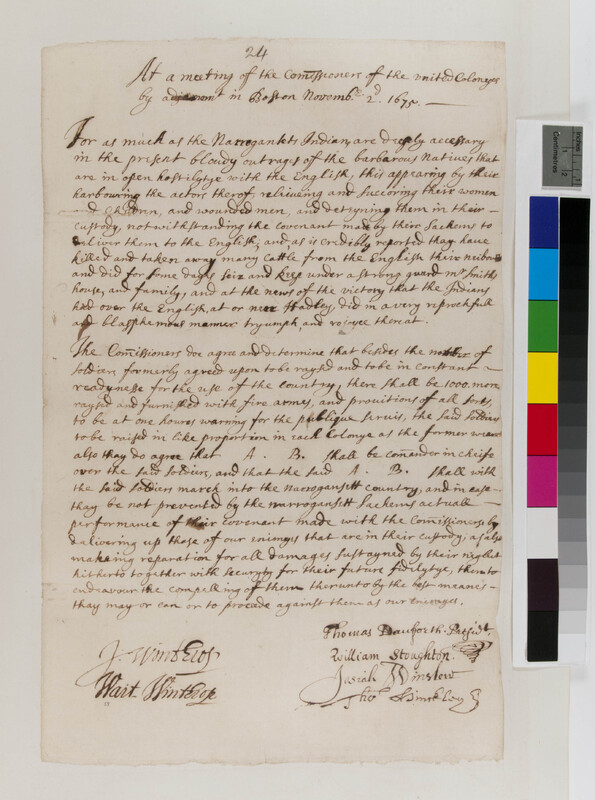 24
At a meeting of the Comissioners of the united Colonyes
by in Boston Novembr. 2d. 1675.
For as much as the Narrogansets Indians are deeply accessary
in the present bloudy outrages of the barbarous natives that
are in open hostilytye with the English, this appearing by their
harbouring the actors therof, releiveing and succoring their women
and children, and wounded men, and detayning them in their
custody, not withstanding the covenant made by their Sachems to
deliver them to the English; and, as is credibly reported thay have
killed and taken away many Cattle from the English their neibors
and did for some dayes seiz and keep under a strong guard mr Smiths
house, and family; and at the news of the victory that the Indians
had over the English, at or neer Hadley, did in a very reprochfull
and blasphemous manner tryumph and rejoyce thereat.
The Comissioners doe agree and determine that besides the number of
soldiers formerly agreed upon to be raysed and to be in constant
readynesse for the use of the country, there shall be 1000. more
raysed and furnished with fire armes, and provitions of all sorts,
to be at one houres warning for the publique servis, the said soldiers
to be raised in like proportion in each Colonye as the former were
also thay do agree that A. B. shall be comander in cheife
over the said soldiers, and that the said A. B. shall with
the said soldiers march into the Narrogansett country, and in case
thay be not prevented by the narrogansett Sachems actuall
performance of their covenant made with the Comissioners by
delivering up those of our enimyes that are in their custody, as also
makeing reparation for all damages sustayned by their neglect
hitherto together with securyty for their future fidelytye, then to
endeavour the compelling of them therunto by the best meanes
thay may or can or to proceede against them as our enemyes.
Thomas Danforth. Presidt.
William Stoughton.
J. Winthrop
Josiah Winslow
Wait Winthrop
Tho: Hinckley